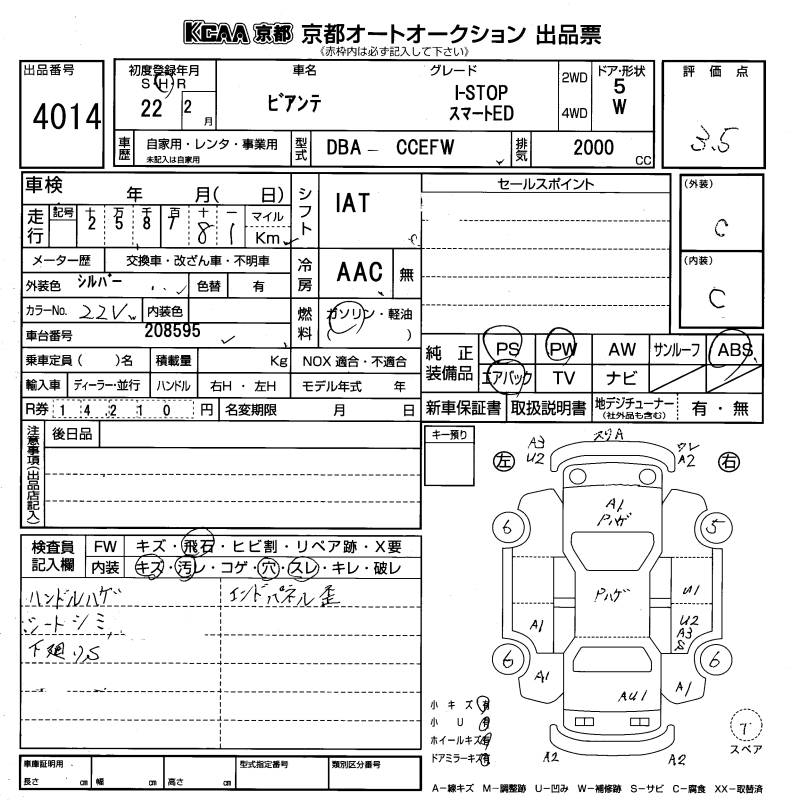 KCAA 京都 京都オートオークション 出品票
《赤枠内は必ず記入して下さい》
出品番号
4014
初度登録年月
S H R
22 2 月
車名
ビアンテ
グレード
I-STOP
スマートED
2WD
4WD
ドア・形状
5
W
評価点
3.5
車歴
自家用・レンタ・事業用
未記入は自家用
型式
DBA - CCEFW
排気
2000 CC
車検 年 月( 日)
シフト
IAT
セールスポイント
(外装)
C
走行
記号 十 万 千 百 十 一 マイル
2 5 8 7 8 1 Km
メーター歴 交換車・改ざん車・不明車
冷房
AAC 無
(内装)
C
外装色 シルバー 色替 有
カラーNo. 22V 内装色
燃料
ガソリン・軽油
( )
車台番号 208595
純正装備品
PS PW AW サンルーフ ABS
エアバック TV ナビ
乗車定員( )名 積載量 Kg NOX 適合・不適合
輸入車 ディーラー・並行 ハンドル 右H・左H モデル年式 年
新車保証書 取扱説明書 地デジチューナー(社外品も含む) 有・無
R券 14210 円 名変期限 月 日
注意事項(出品店記入)
後日品
キー預り
左
右
A3
U2
スリA
ワレ
A2
A1
Pハゲ
6
5
Pハゲ
U1
A1
U2
A3
S
6
6
A1
AU1
A1
A2
A2
検査員記入欄
FW キズ・飛石・ヒビ割・リペア跡・X要
内装 キズ・汚レ・コゲ・穴・スレ・キレ・破レ
ハンドルハゲ
インドパネル歪
シートシミ
下廻りS
小キズ 有
小U 有
ホイールキズ 有
ドアミラーキズ 有
T
スペア
車庫証明用
長さ cm 幅 cm 高さ cm
型式指定番号
類別区分番号
A-線キズ M-調整跡 U-凹み W-補修跡 S-サビ C-腐食 XX-取替済